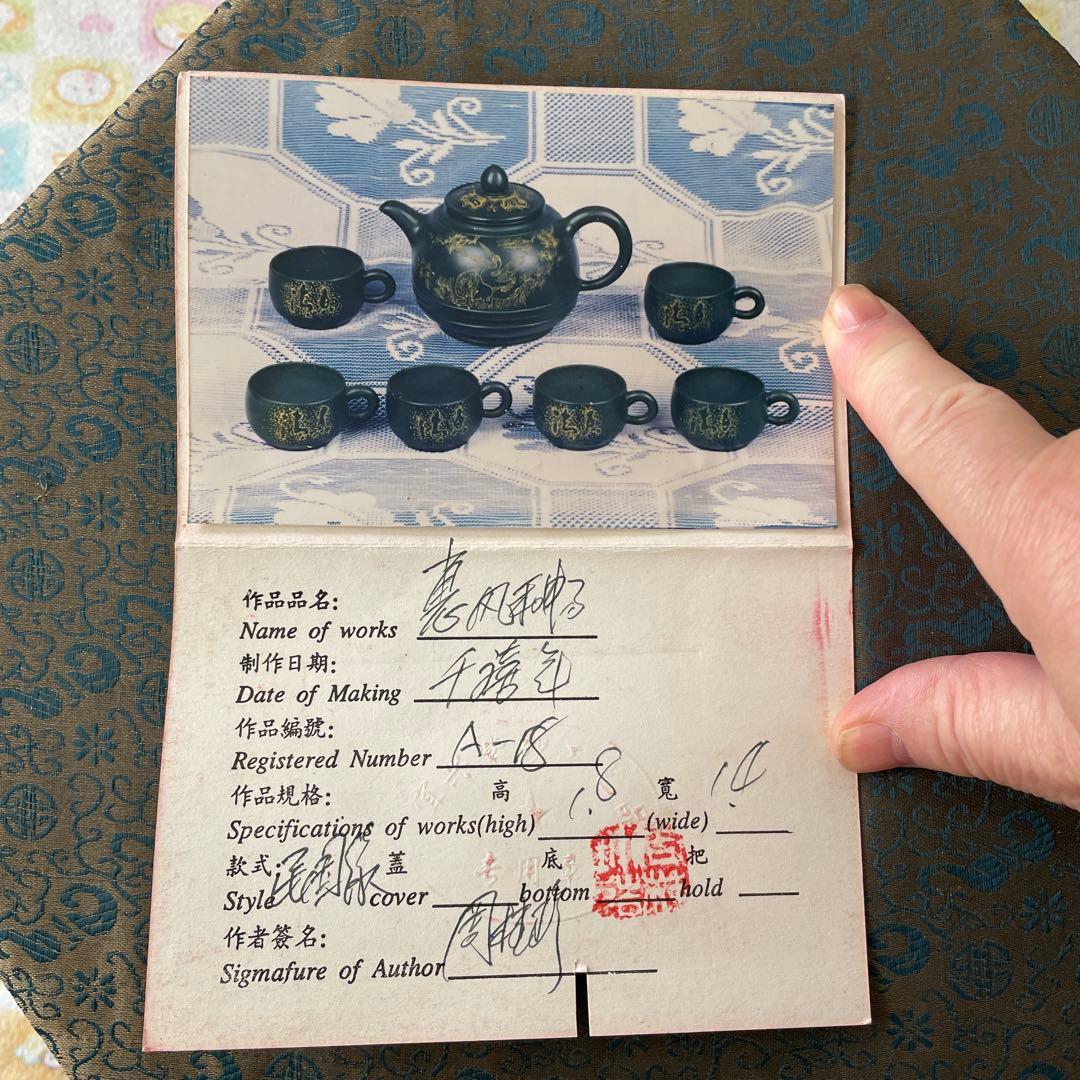 作品品名:
Name of works 惠风和畅
制作日期:
Date of Making 千禧年
作品編號:
Registered Number A-18
作品規格: 高 1.8 寬 1.4
Specifications of works(high) (wide)
款式: 蓋 底 把
Style cover bottom hold
专用章
作者簽名:
Sigmafure of Author